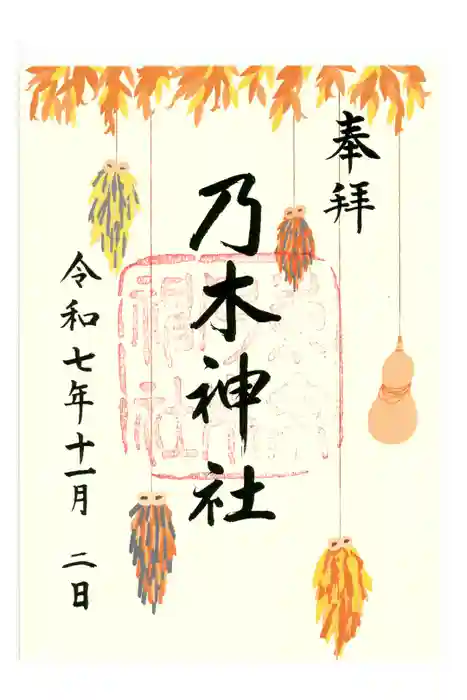 奉拝
乃木神社
令和七年十一月二日